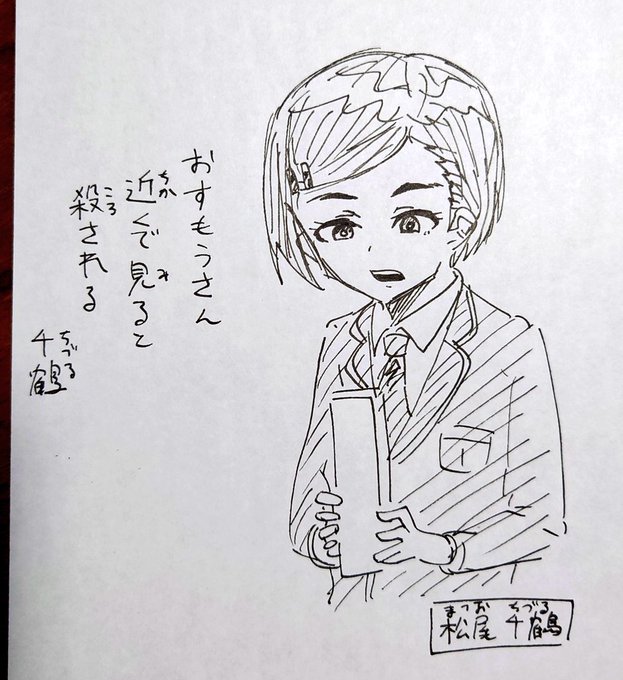 おすもうさん
近くで見ると
殺される
千鶴
松尾 千鶴
ちか
み
ころ
ちづる
まつお ちづる